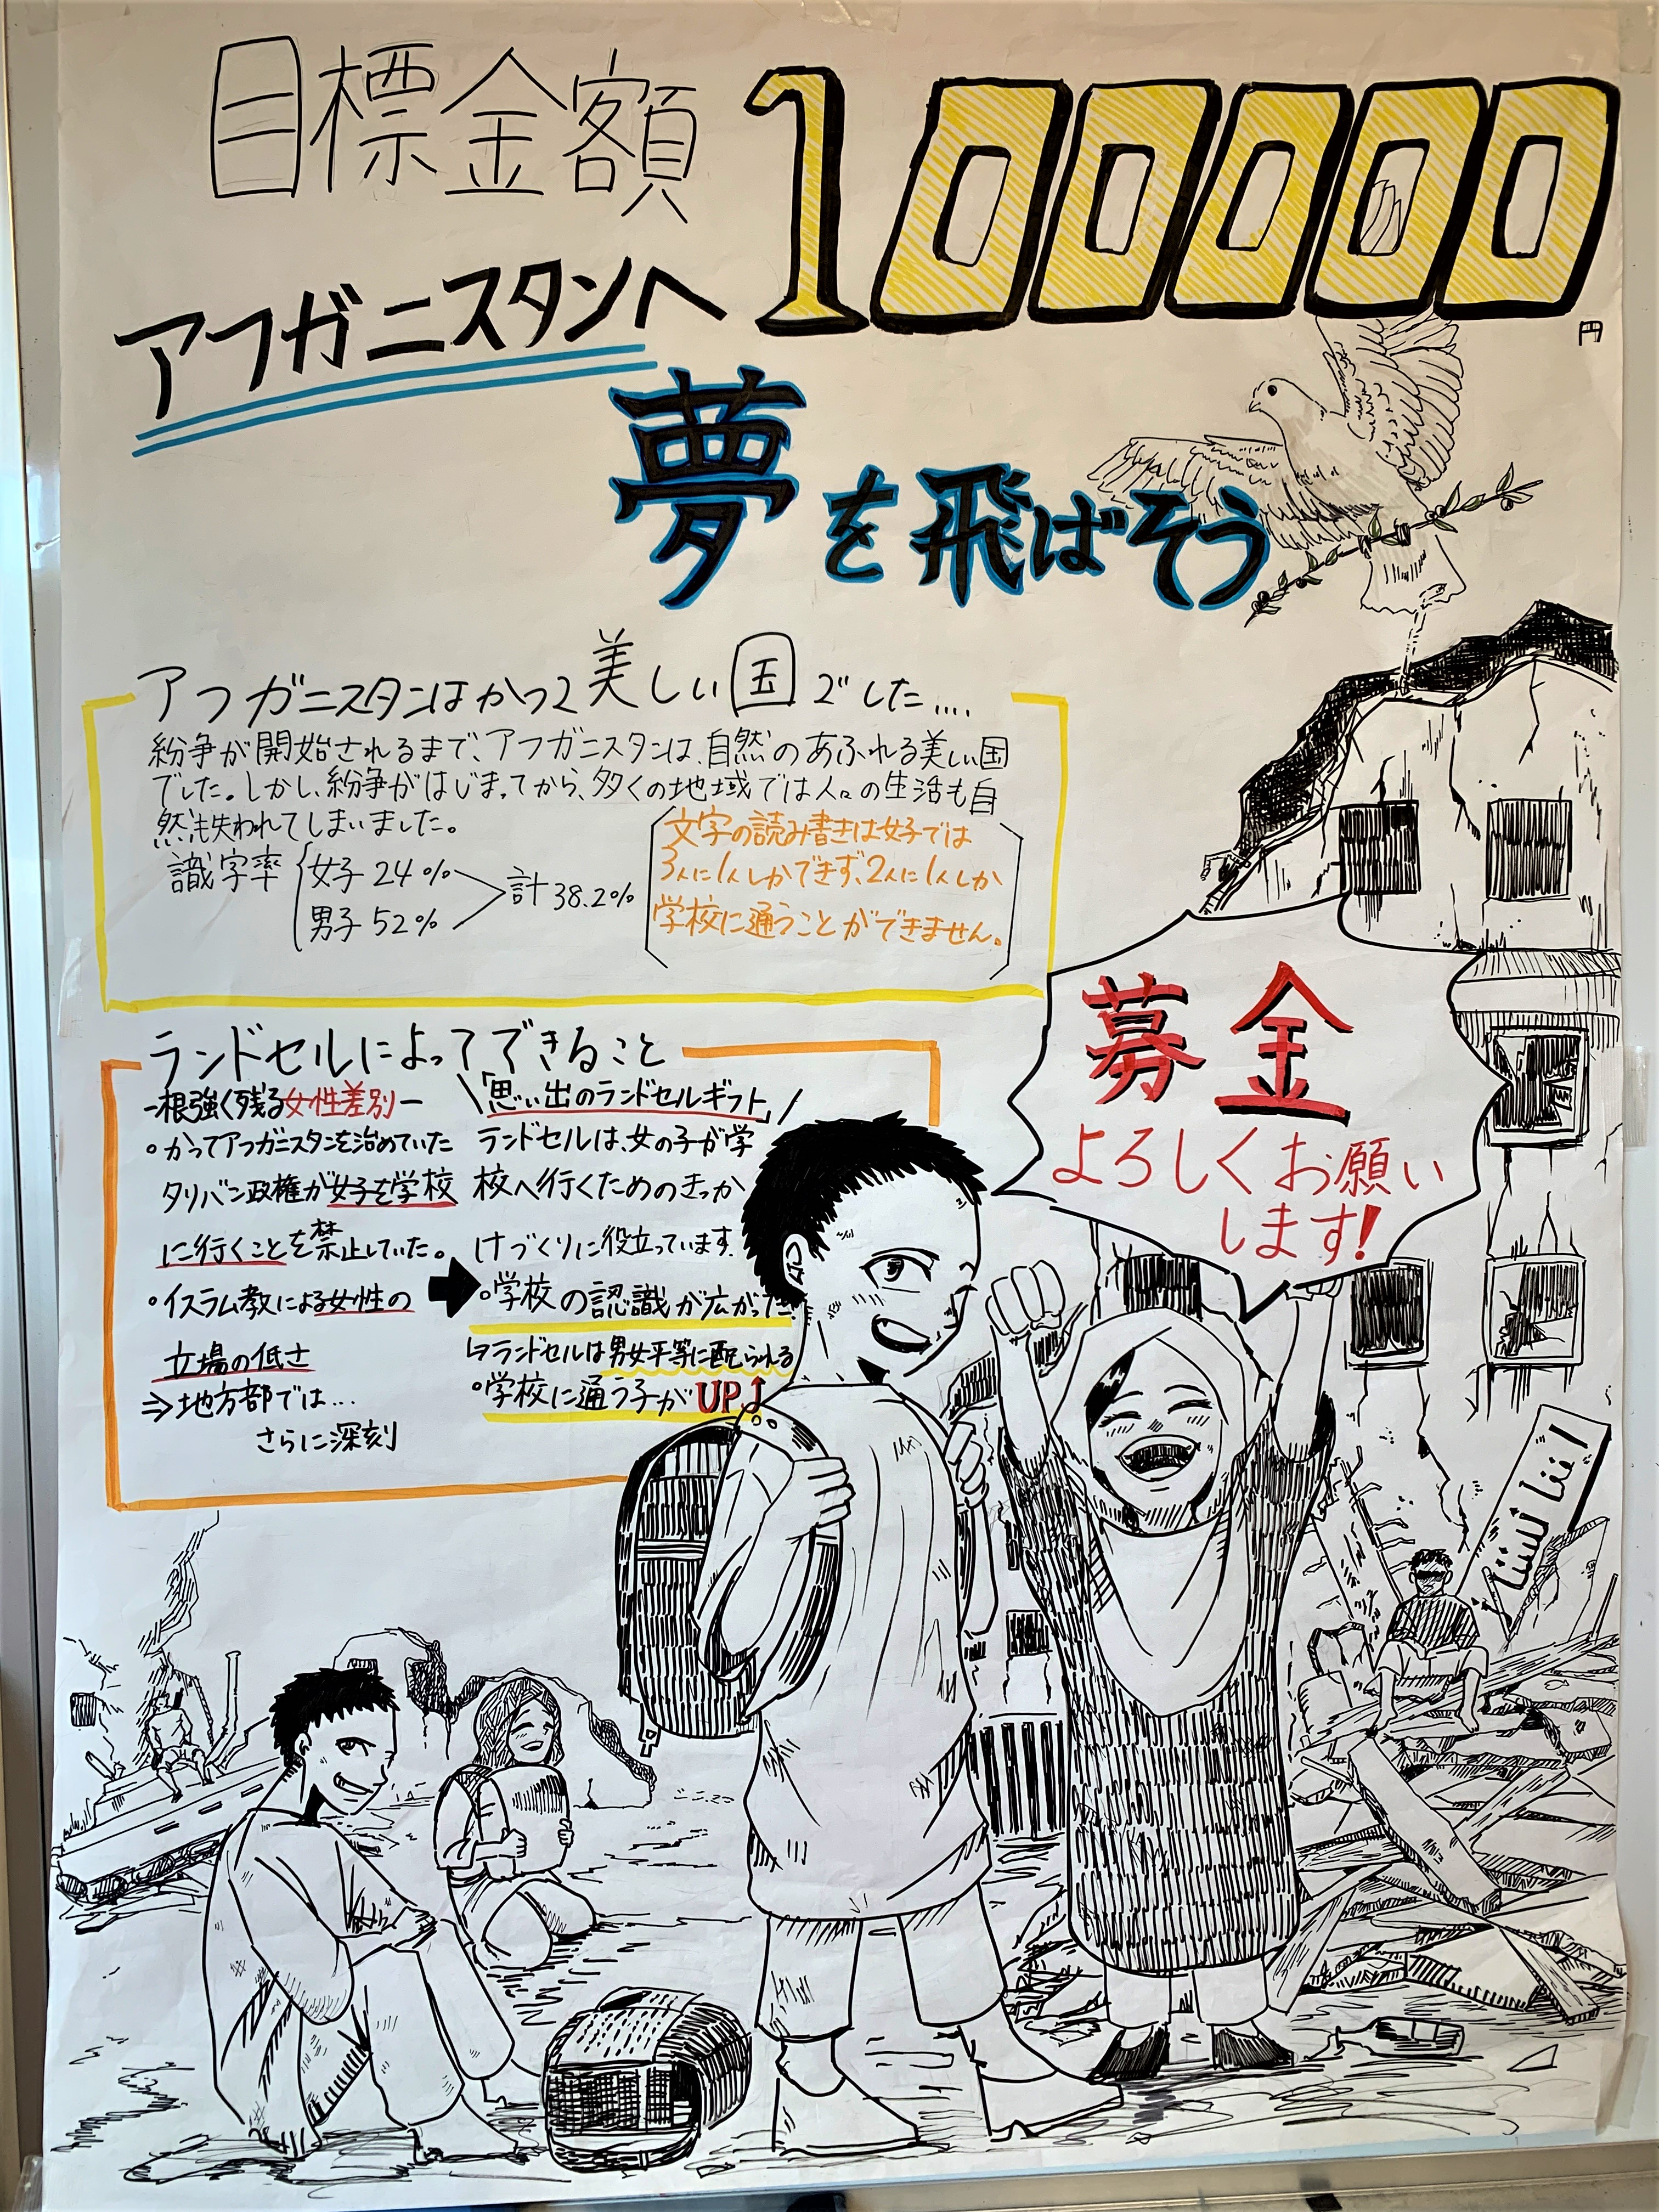 目標金額 100000円
アフガニスタンへ
夢を飛ばそう
アフガニスタンはかつて美しい国でした....
紛争が開始されるまで、アフガニスタンは、自然のあふれる美しい国
でした。しかし、紛争がはじまってから、多くの地域では人々の生活も自
然も失われてしまいました。
識字率
女子 24%
男子 52%
計 38.2%
文字の読み書きは女子では
3人に1人しかできず、2人に1人しか
学校に通うことができません。
募金
よろしくお願い
します!
ランドセルによってできること
-根強く残る女性差別-
・かつてアフガニスタンを治めていた
タリバン政権が女子を学校
に行くことを禁止していた。
・イスラム教による女性の
立場の低さ
⇒地方部では...
さらに深刻
➡
\「思い出のランドセルギフト」/
ランドセルは、女の子が学
校へ行くためのきっか
けづくりに役立っています.
・学校の認識が広がった
↳ランドセルは男女平等に配られる
・学校に通う子がUP↑